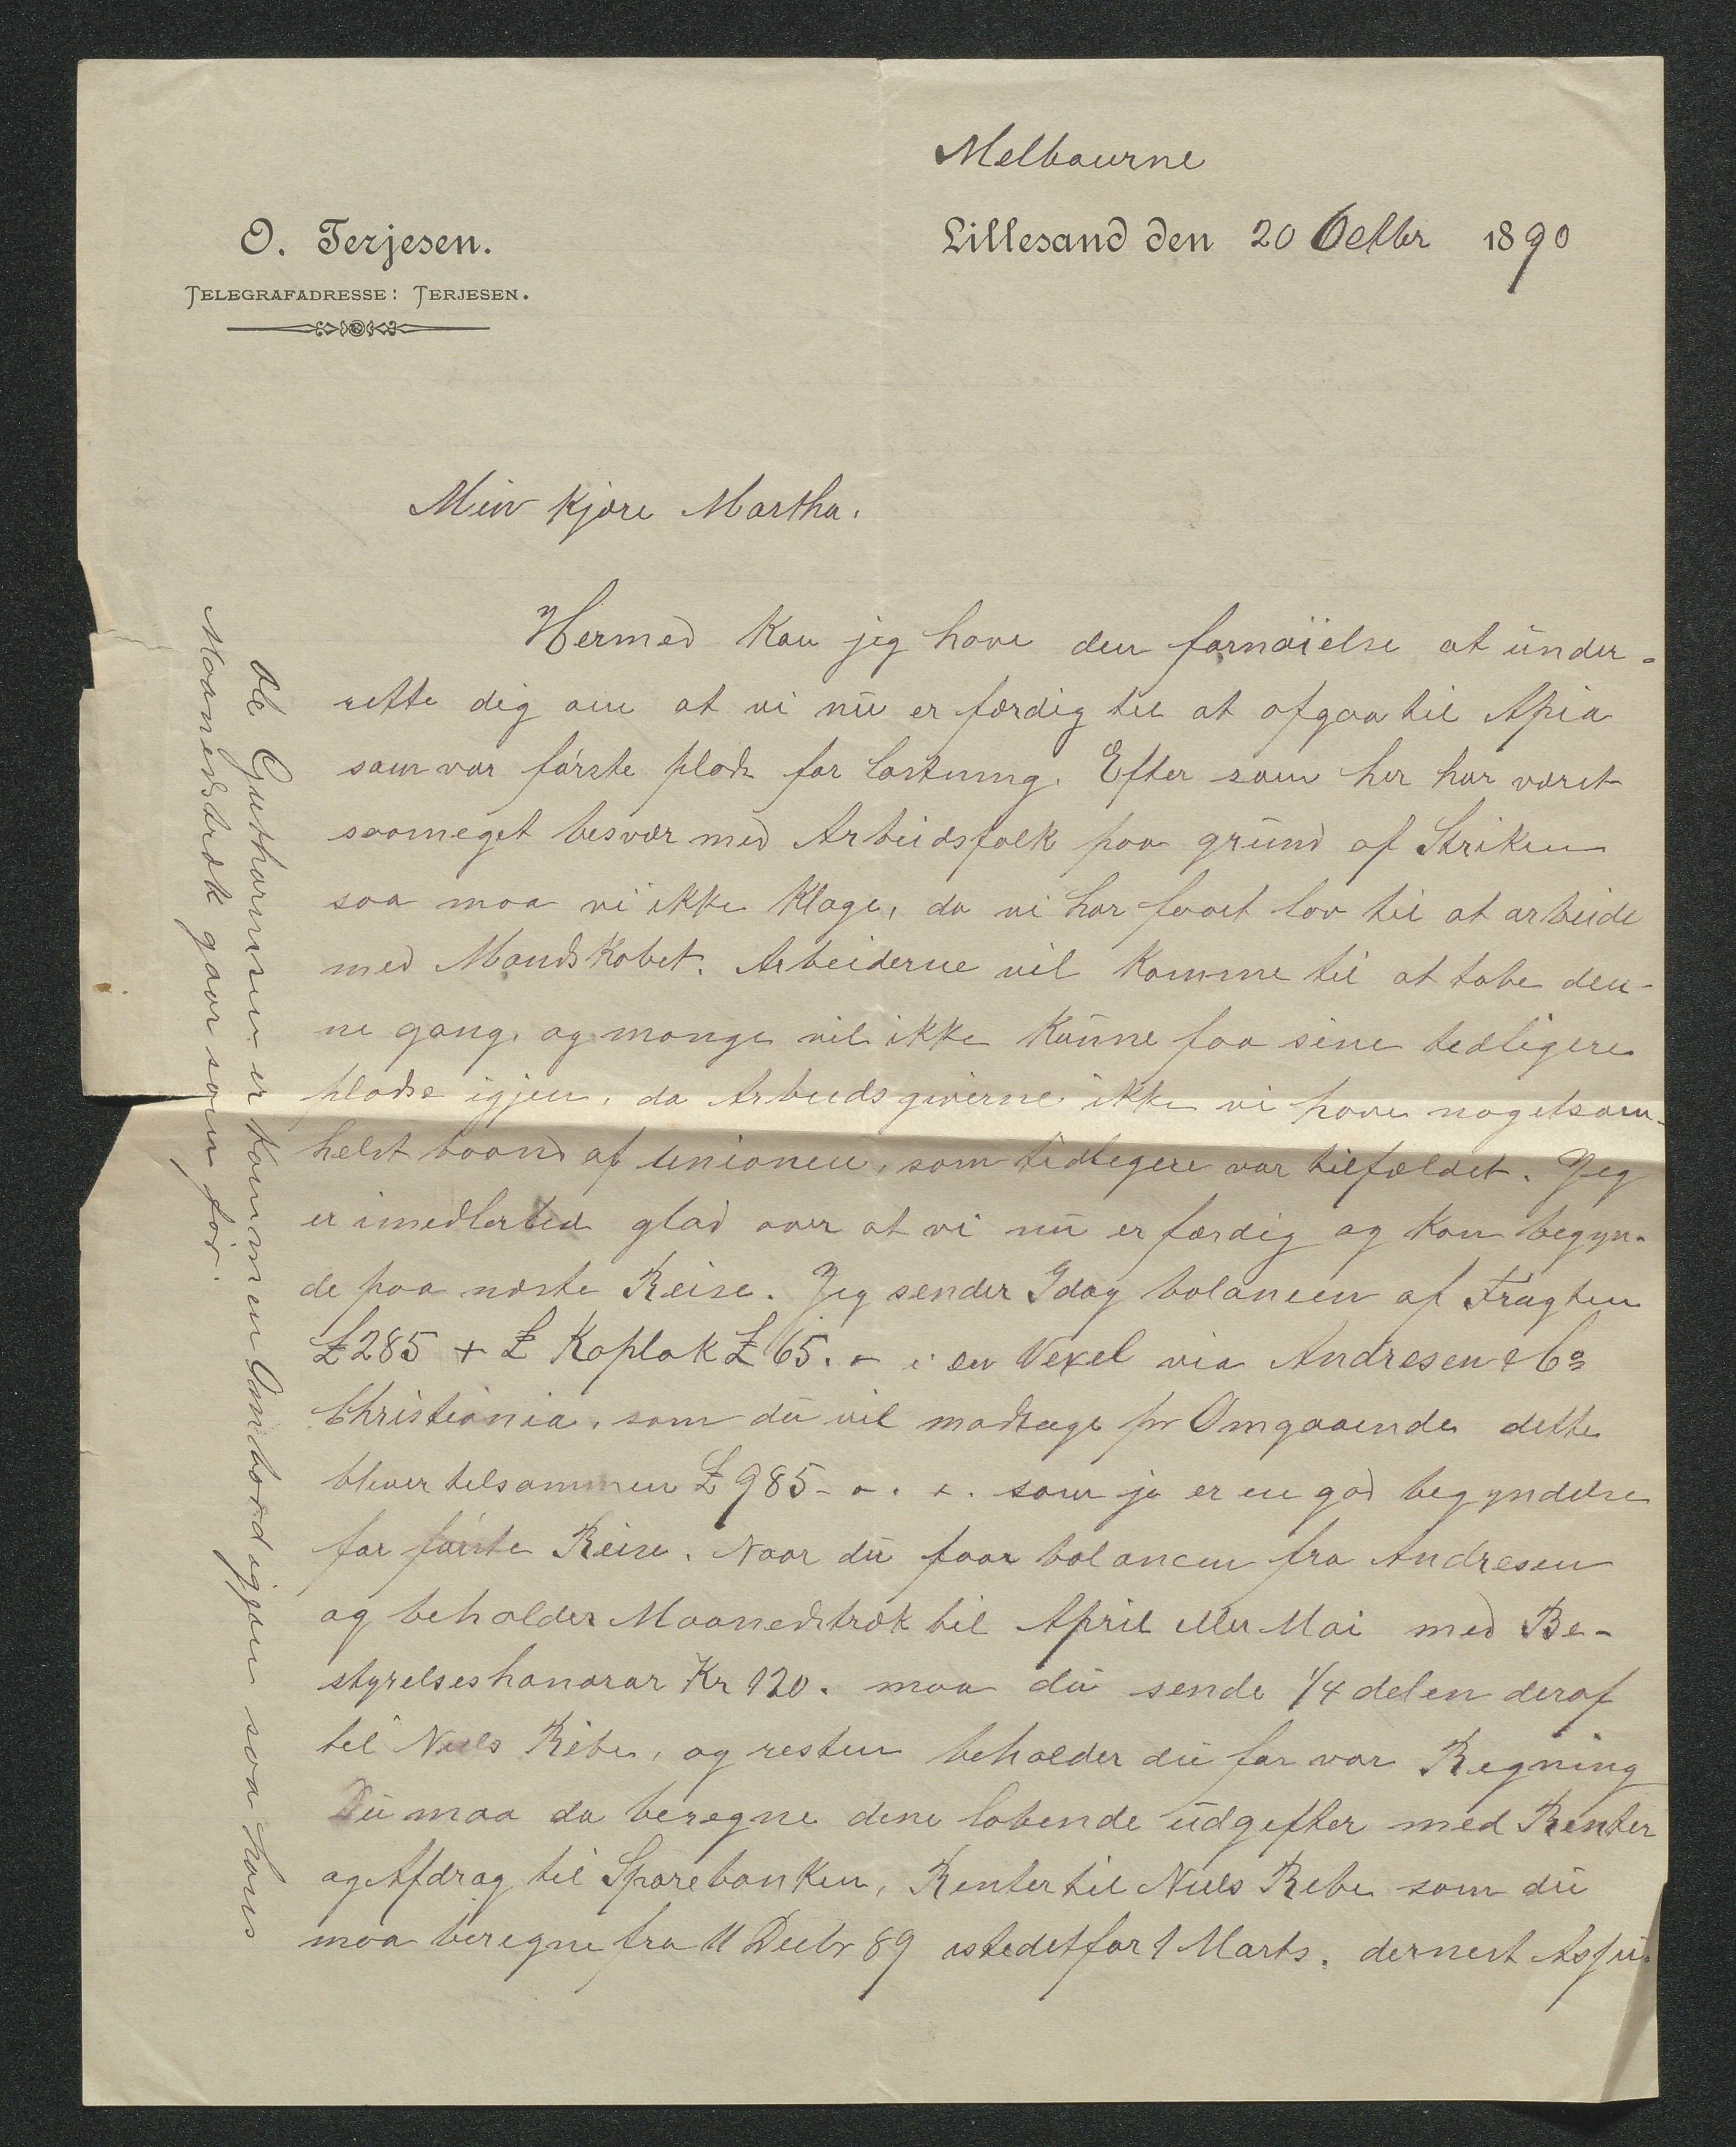 Melbourne
O. Terjesen.
Lillesand den 20 Octbr 1890
TELEGRAFADRESSE: TERJESEN.
Min kjære Martha.
Hermed kan jeg have den fornøielse at under-
rette dig om at vi nu er færdig til at afgaa til Apia
som var første plads for lastning. Efter som her har været
saameget besvær med Arbeidsfolk paa grund af Striken
saa maa vi ikke klage, da vi har faaet lov til at arbeide
med Mandskabet. Arbeiderne vil komme til at tabe den-
ne gang, og mange vil ikke kunne faa sine tedligere
pladse igjen, da Arbeidsgiverne ikke vi have nogetsom-
helst baand af Unionen, som tidligere var tilfældet. Jeg
er imedlertid glad over at vi nu er færdig og kan begyn-
de paa næste Reise. Jeg sender Idag balancen af Fragten
£285 + £ Kaplak £65. - i en Vexel via Andresen & Co
Christiania, som du vil modtage pr Omgaaende dette
bliver tilsammen £985 - - . - . som jo er en god begyndelse
for første Reise. Naar du faar balancen fra Andresen
og beholder Maanedstræk til April eller Mai med Be-
styrelseshonorar Kr 120. maa du sende 1/4 delen deraf
til Niels Ribe, og resten beholder du for vor Regning
Du maa da beregne dine løbende udgifter med Renter
og Afdrag til Sparebanken, Renter til Niels Ribe som du
maa beregne fra 11 Decbr 89 istedetfor 1 Marts. dernest Assu-
Ole Guthormsen er kommen Ombord igjen saa hans
Maanedstræk gaar som før.